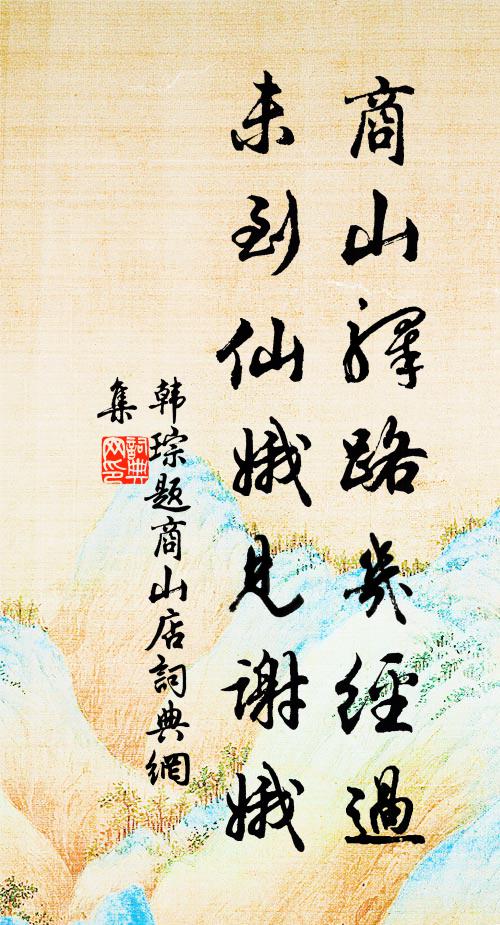 商山驛路幾經過
未到仙娥見謝娥
韩琮题商山店詞典網
集
詞典
网印